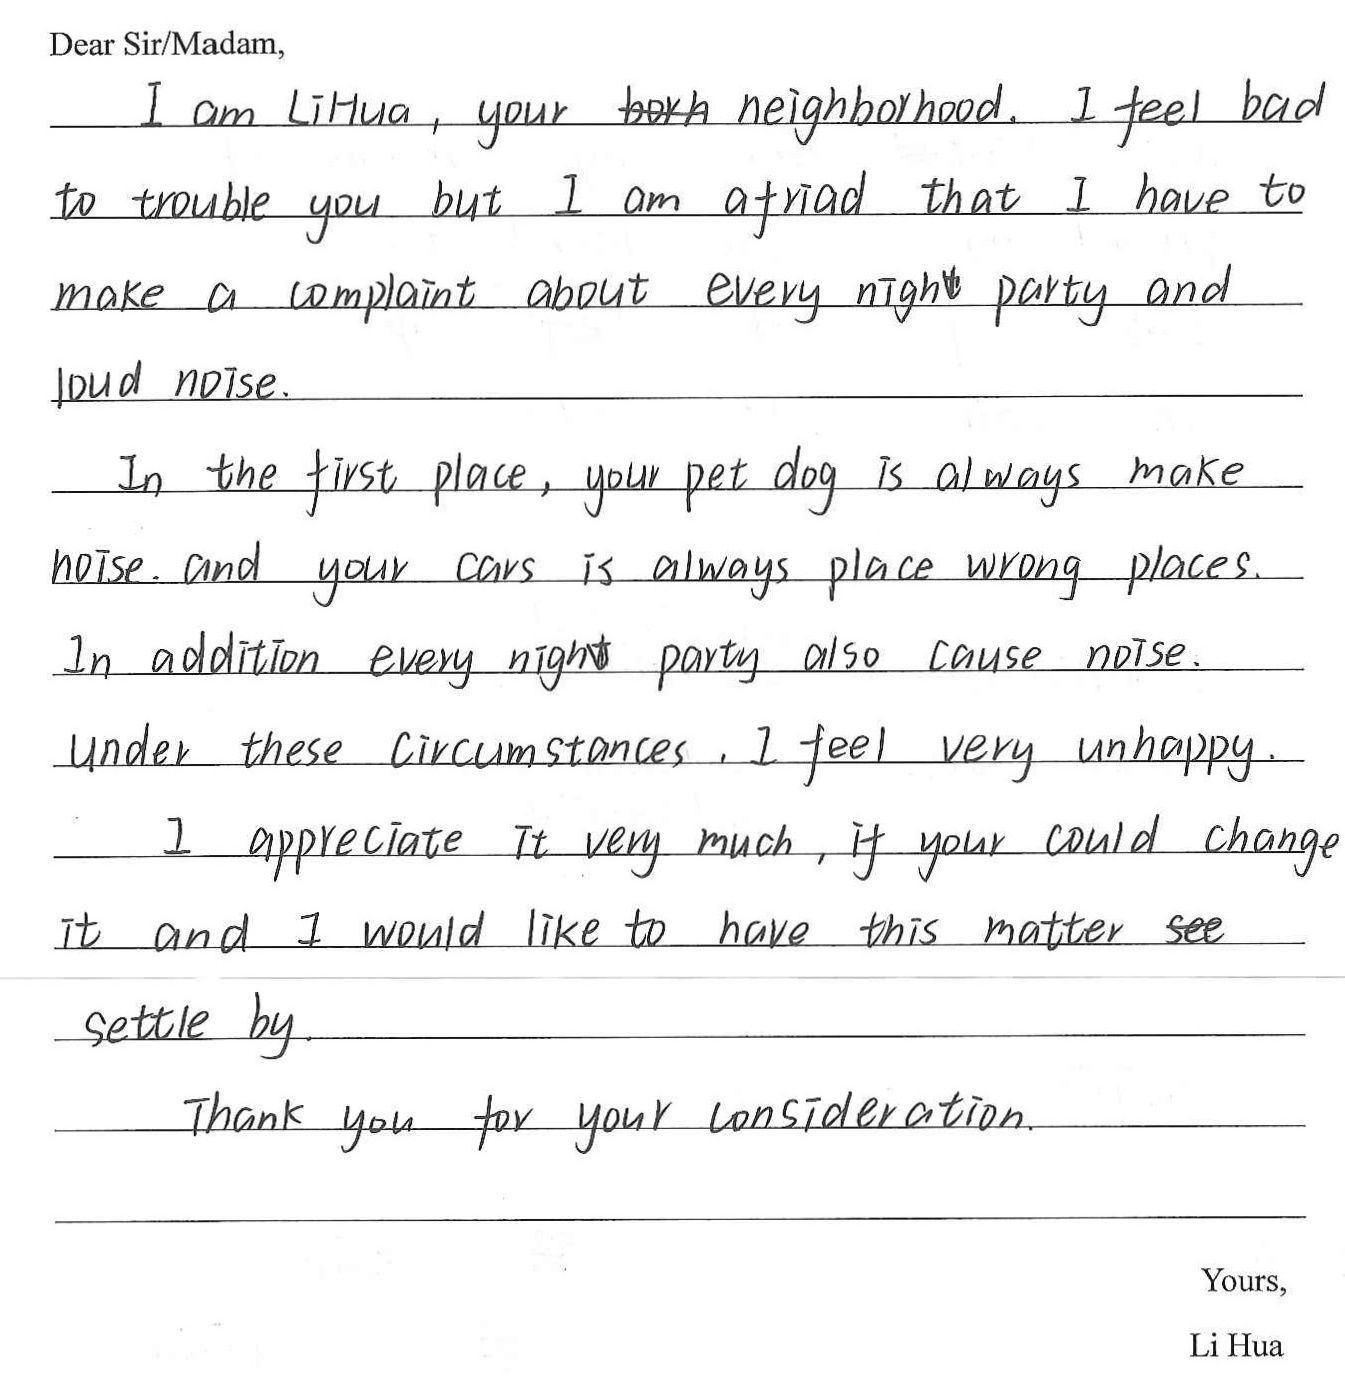 Dear Sir/Madam,
I am LiHua, your neighborhood. I feel bad
to trouble you but I am afriad that I have to
make a complaint about every night party and
loud noise.
In the first place, your pet dog is always make
noise. and your cars is always place wrong places.
In addition every night party also cause noise.
under these circumstances, I feel very unhappy.
I appreciate it very much, if your could change
it and I would like to have this matter see
settle by.
Thank you for your consideration.
Yours,
Li Hua